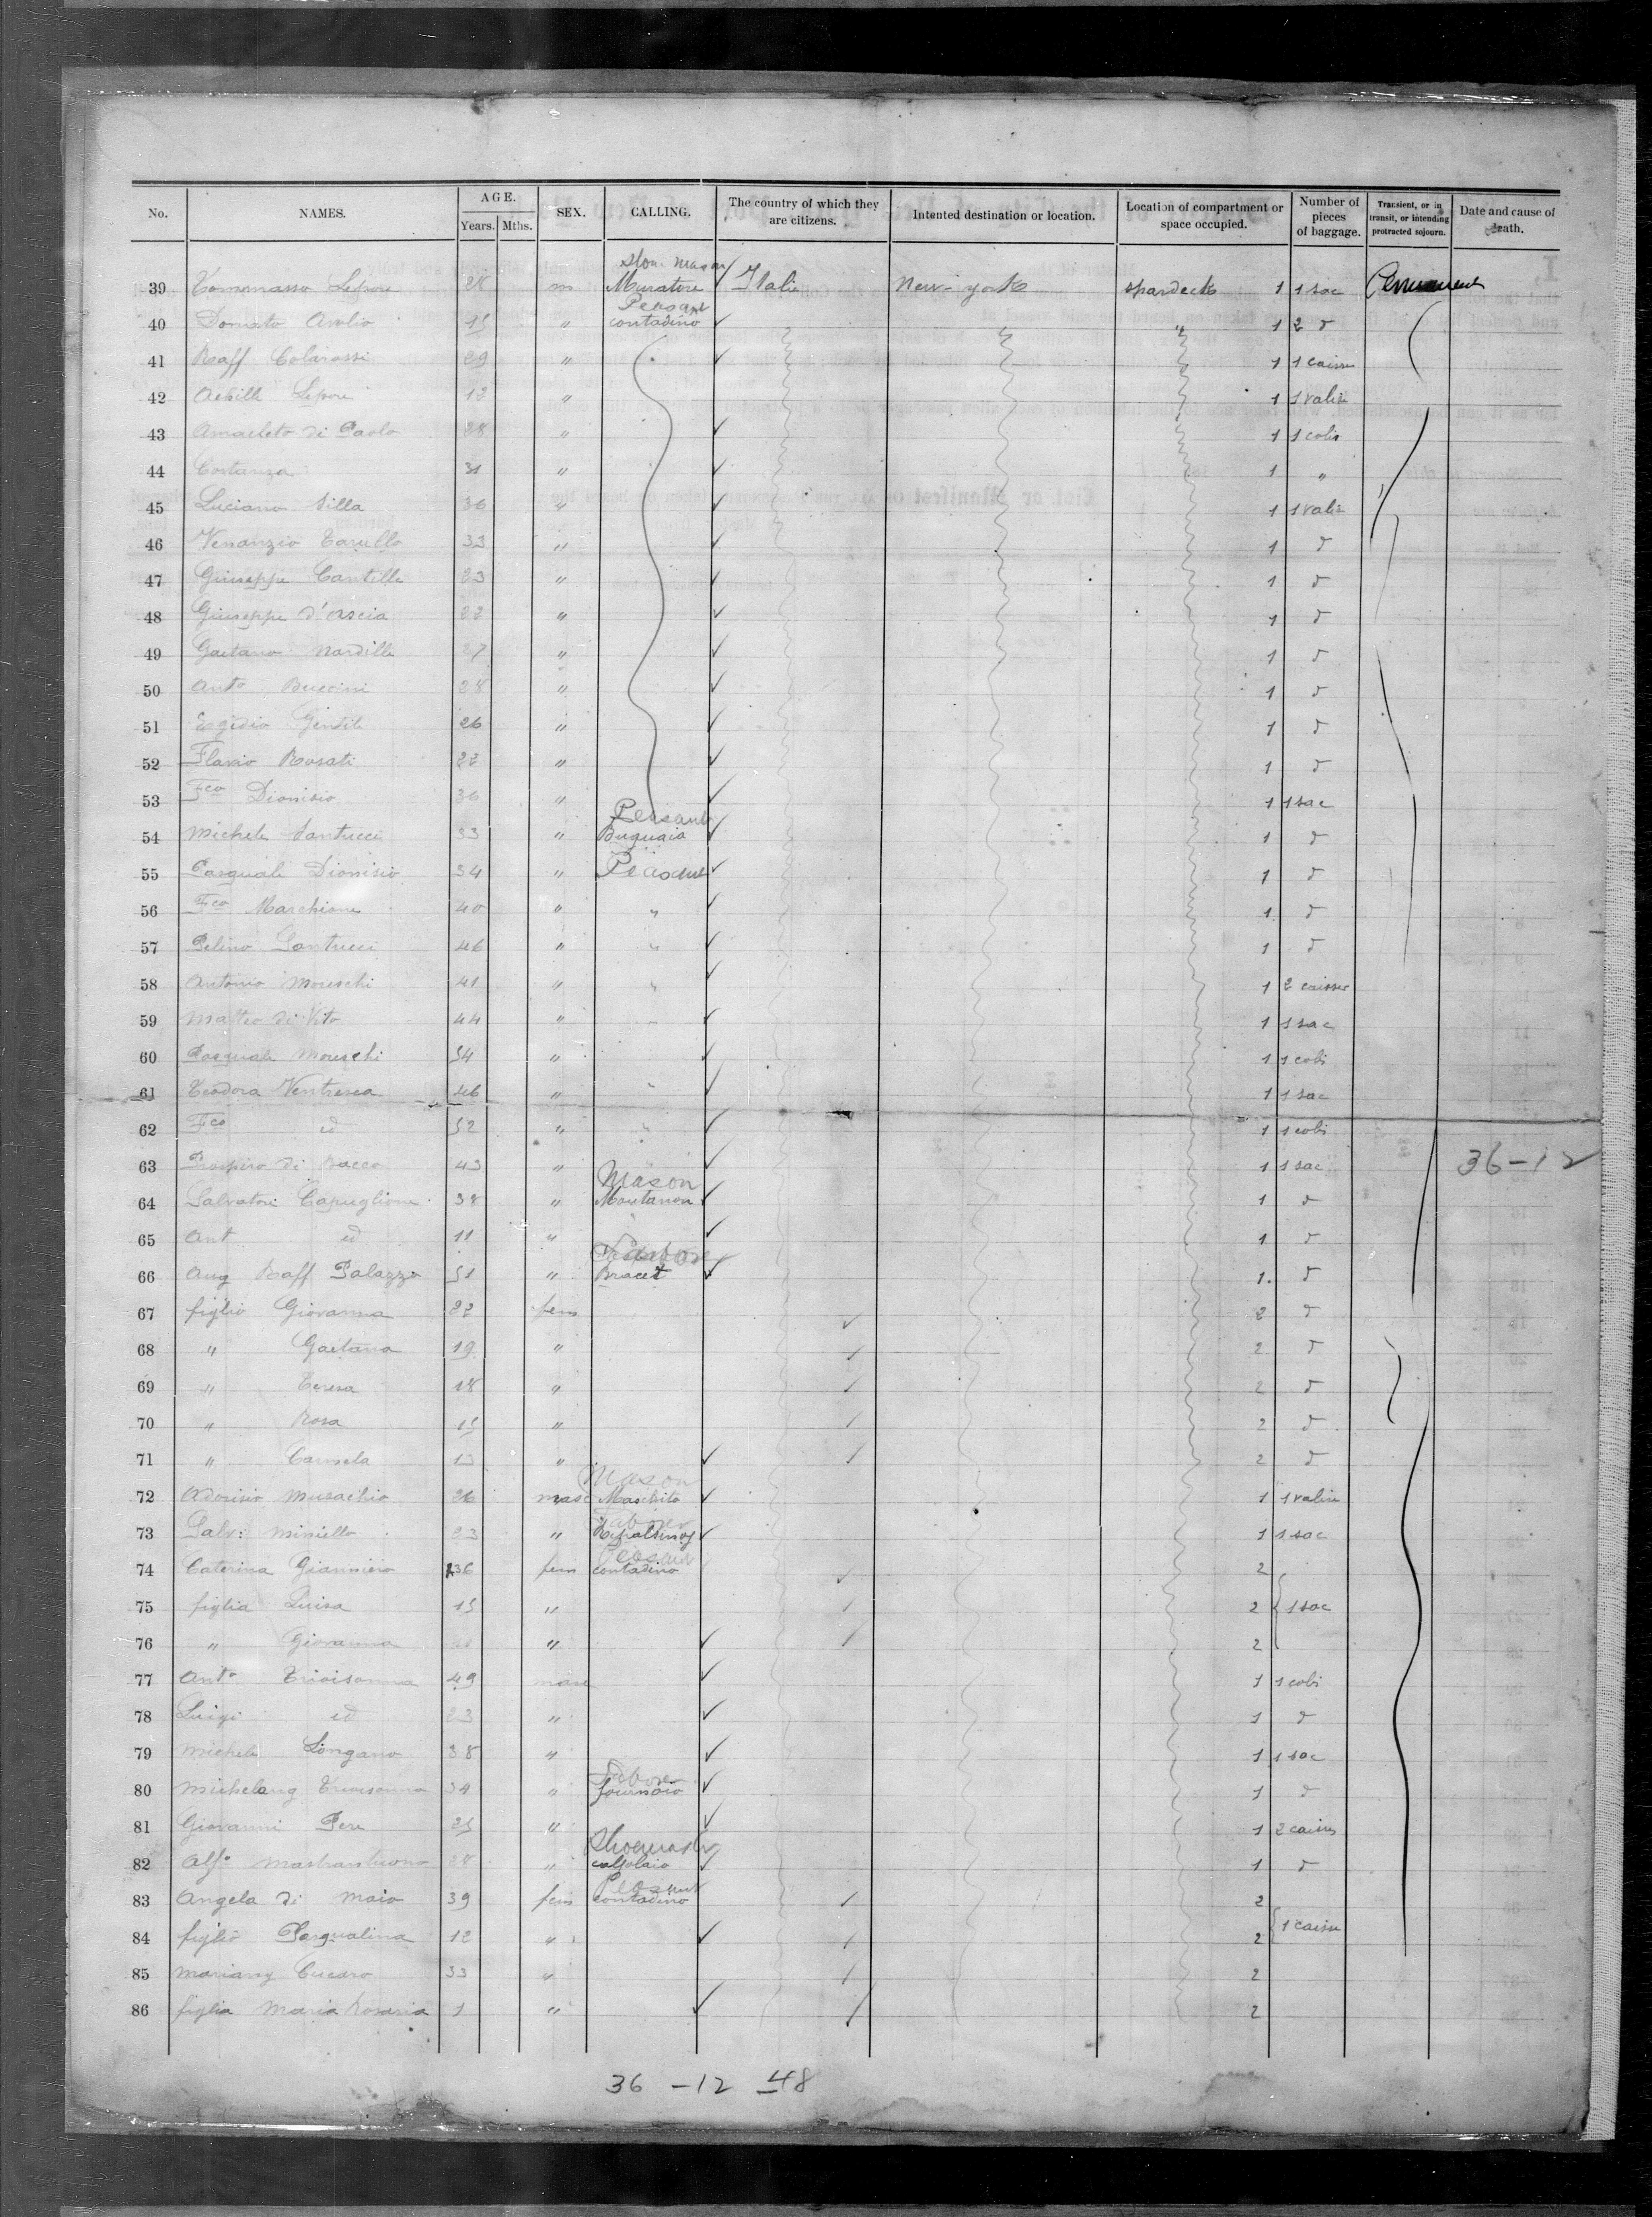 No. NAMES. AGE. Years. Mths. SEX. CALLING. The country of which they are citizens. Intented destination or location. Location of compartment or space occupied. Number of pieces of baggage. Transient, or in transit, or intending protracted sojourn. Date and cause of death.
Mason
39 Tommaso Lepore 28 m Muratore ✓ Italie New-york spardeck 1 1 sac
40 Donato 15 " contadino ✓ " 1 2 d
41 Raff Colarossi 29 " ✓ 1 1 caisse
42 Achille Lepore 12 " 1 1 valise
43 Amacleto di Paolo 28 " ✓ 1 1 colis
44 Costanza 31 " ✓ 1 "
45 Luciano Silla 36 " ✓ 1 1 valise
46 Venanzio Tarullo 33 " ✓ 1 d
47 Giuseppe Cantilli 23 " ✓ 1 d
48 Giuseppe d'Ascia 22 " ✓ 1 d
49 Gaetano Nardilli 27 " ✓ 1 d
50 Anto Buccini 28 " ✓ 1 d
51 Egidio Gentile 26 " ✓ 1 d
52 Flavio Rosati 22 " ✓ 1 d
53 Fco Dionisio 36 " ✓ 1 1 sac
Peasant
54 Michele Santucci 33 " ✓ 1 d
55 Pasquale Dionisio 34 " Peasant ✓ 1 d
56 Fco Marchione 40 " " ✓ 1 d
57 Pelino Santucci 46 " " ✓ 1 d
58 Antonio Moreschi 41 " " ✓ 1 2 caisses
59 Matteo di Vito 44 " ✓ 1 1 sac
60 Pasquale Moreschi 54 " ✓ 1 1 colis
61 Teodora Ventresca 46 " " ✓ 1 1 sac
62 Fco id 52 " " ✓ 1 1 colis
63 Prospero di Bacco 43 " ✓ 1 1 sac 36-12
Mason
64 Salvatore Capuglione 38 " ✓ 1 d
65 Ant id 11 " ✓ 1 d
66 Aug Raff Palazzo 51 " ✓ 1 d
67 figlio Giovanna 22 fem ✓ 2 d
68 " Gaetana 19 " 2 d
69 " Teresa 18 " 2 d
70 " Rosa 15 " 2 d
71 " Carmela 13 " ✓ 2 d
Mason
72 Adorisio Musachio 26 masc ✓ 1 1 valise
73 Salv: Miniello 23 " ✓ 1 1 sac
74 Caterina 36 fem contadino 2
75 figlia Luisa 15 " 2 1 sac
76 " Giovanna " ✓ 2
77 Anto Trivisonna 49 masc ✓ 1 1 colis
78 Luigi id 23 " ✓ 1 d
79 Michele Longano 38 " ✓ 1 1 sac
80 Michelang Trivisonna 34 " ✓ 1 d
81 Giovanni Pere 25 " ✓ 1 2 caisses
82 Alfo Mastrantuono 28 " calzolaio ✓ 1 d
Peasant
83 Angela di Maio 39 fem contadino 2
84 figlio Pasqualina 12 " ✓ 2 1 caisse
85 Mariang Cucaro 33 " 2
86 figlia Maria Rosaria 1 " ✓ 2
36 -12 48